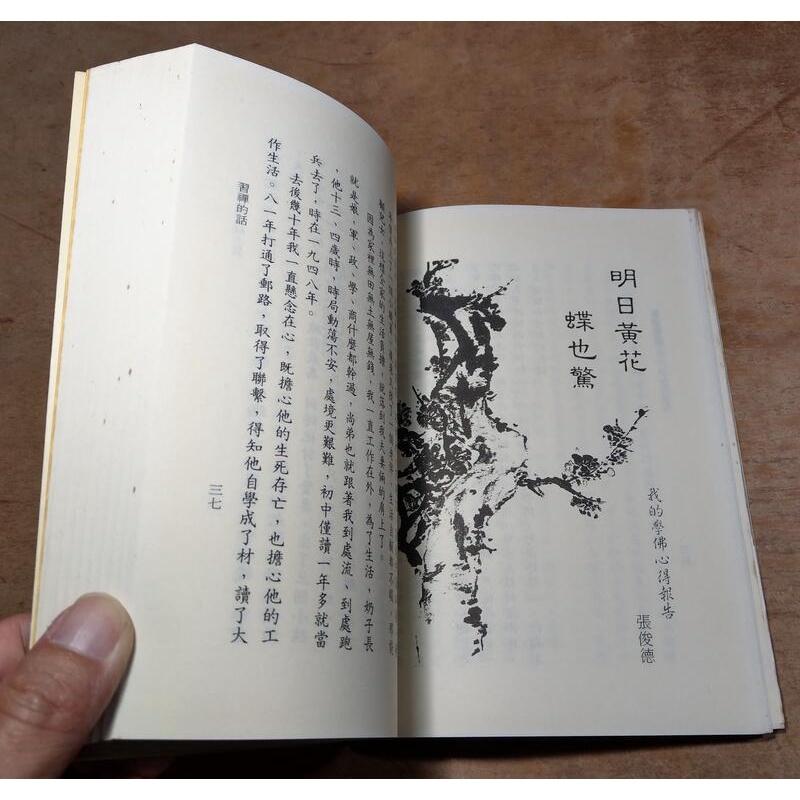 明日黃花
蝶也驚
我的學佛心得報告
張俊德
全家的生活負擔，就落到我夫妻倆的肩上了。
因為家裡無田無土無屋無錢，我一直工作在外，為了生活，奶子長
就是娘，軍、政、學、商什麼都幹過，尚弟也就跟著我到處流、到處跑
，他十三、四歲時，時局動蕩不安，處境更艱難，初中僅讀一年多就當
兵去了，時在一九四八年。
去後幾十年我一直懸念在心，既擔心他的生死存亡，也擔心他的工
作生活。八一年打通了郵路，取得了聯繫，得知他自學成了材，讀了大
習禪的話
三七